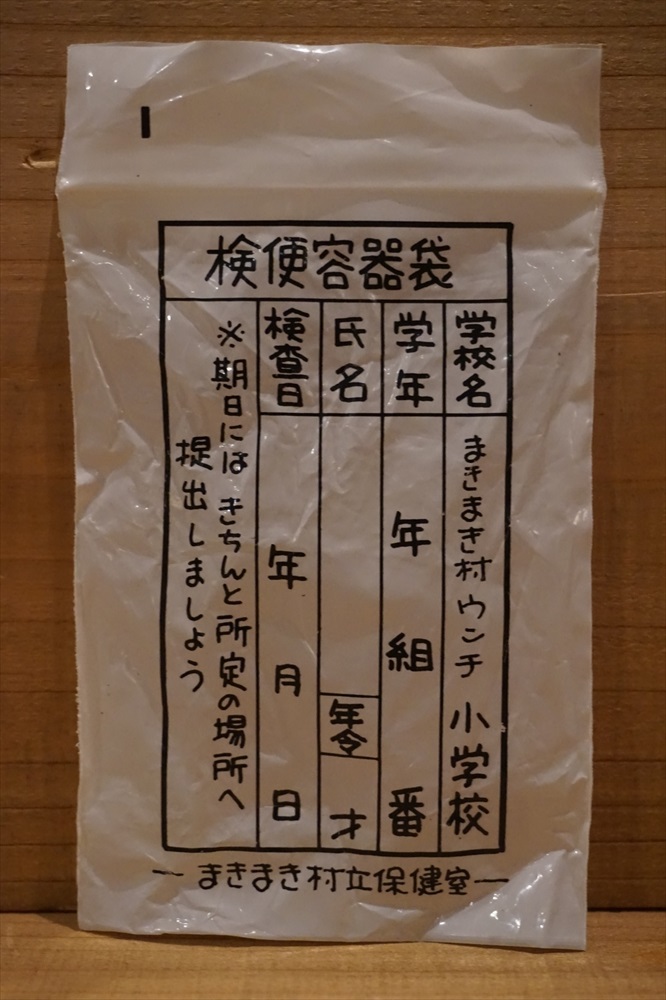 検便容器袋
学校名 まきまき村ウンチ小学校
学年 年 組 番
氏名
年令 才
検査日 年 月 日
※期日には きちんと所定の場所へ
提出しましょう
― まきまき村立保健室 ―